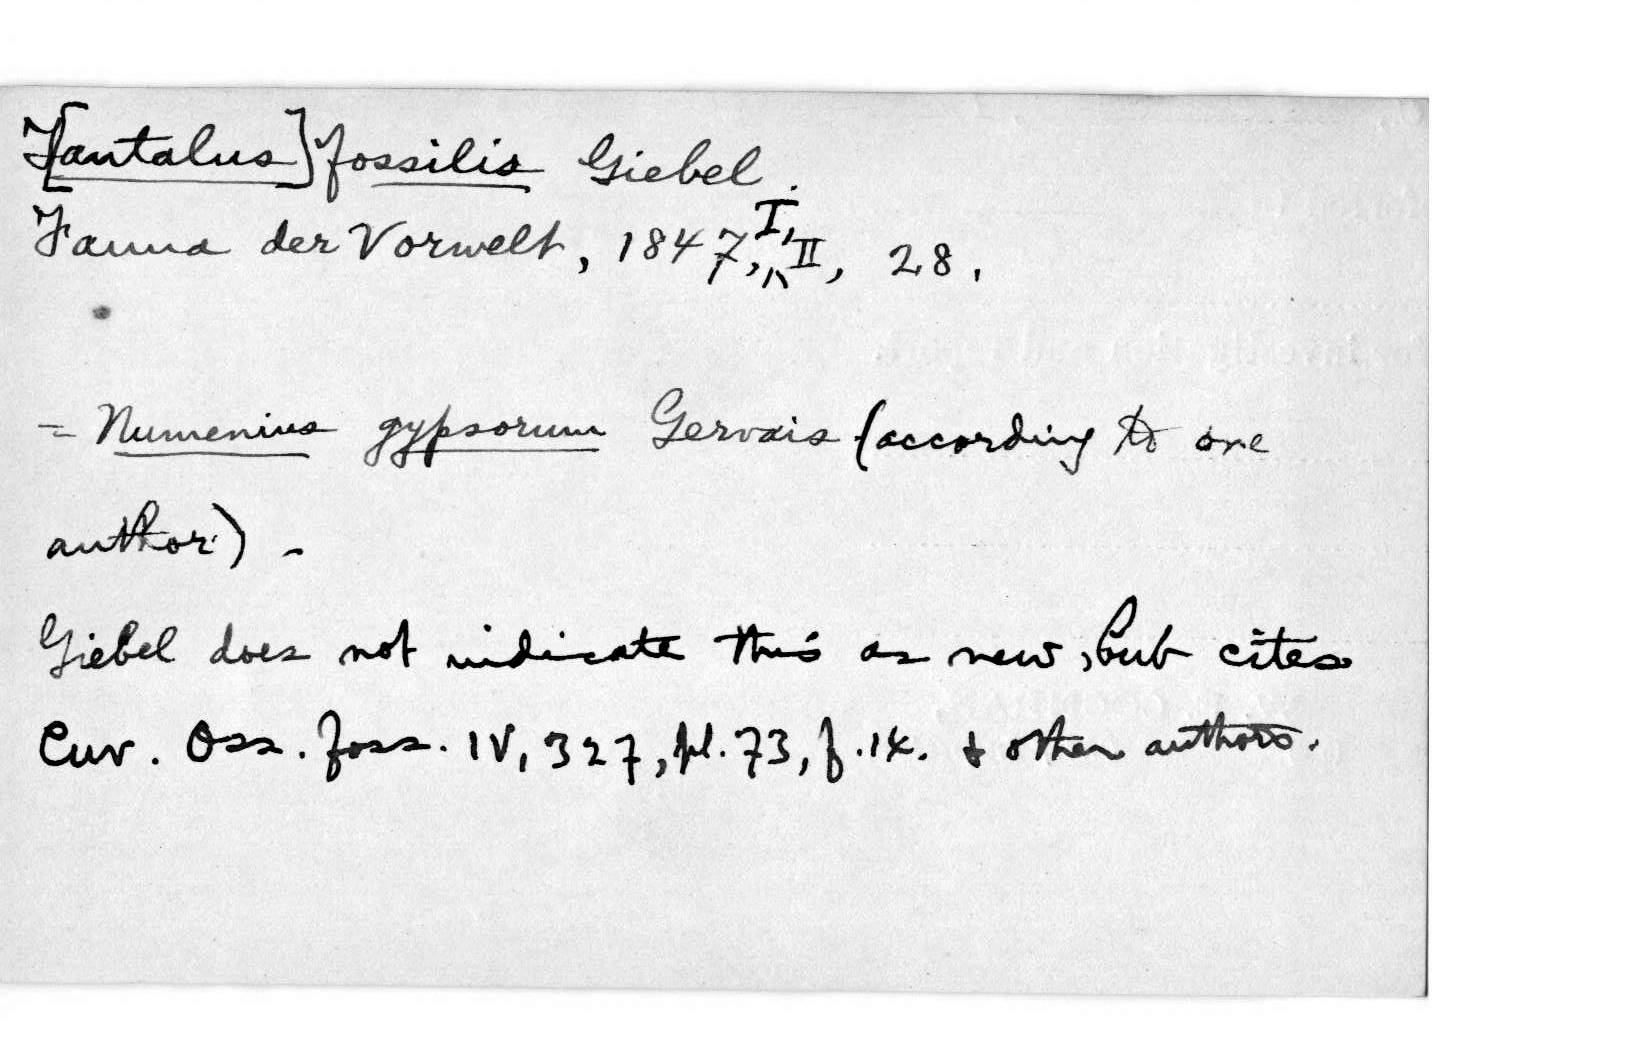 T[antalus] fossilis Giebel.
Fauna der Vorwelt, 1847, I, II, 28.
= Numenius gypsorum Gervais (according to one
author).
Giebel does not indicate this as new, but cites
Cuv. Oss. foss. IV, 327, pl. 73, f. 14. & other authors.